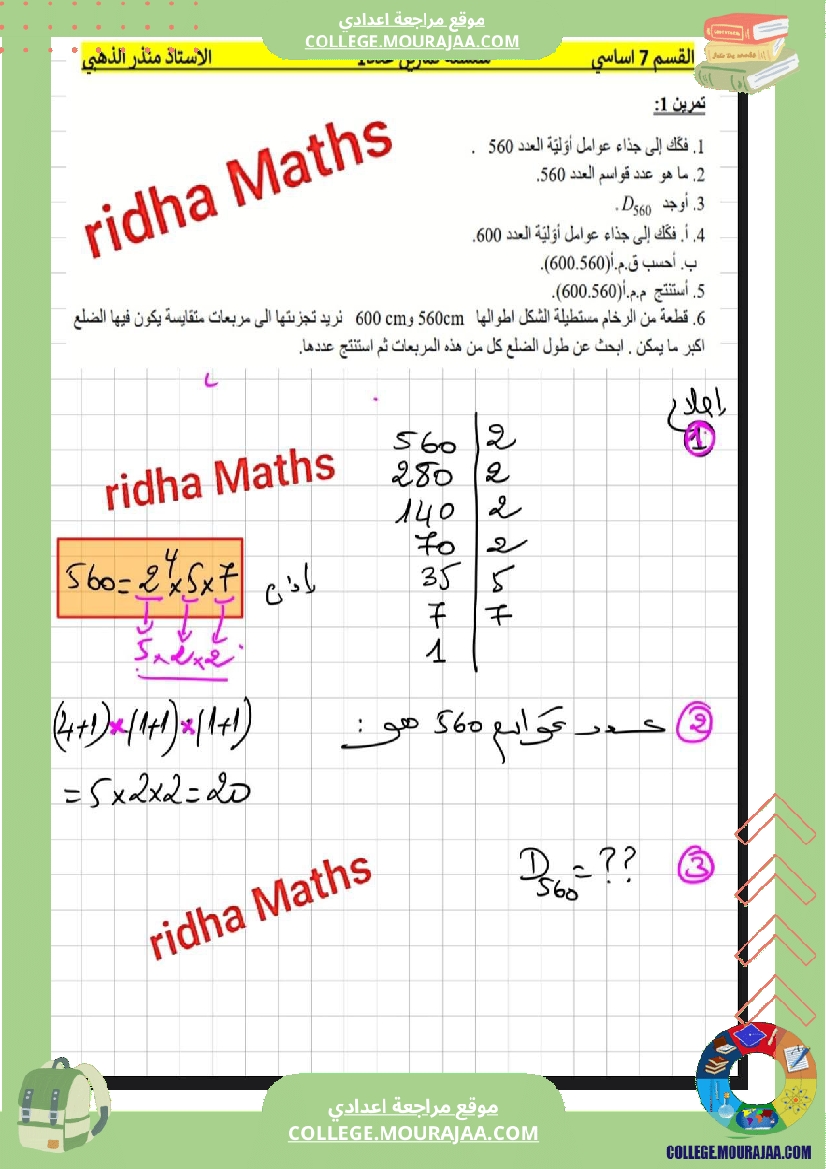 موقع مراجعة اعدادي
COLLEGE.MOURAJAA.COM
القسم 7 اساسي سلسلة تمارين عدد1 الاستاذ منذر الذهبي
تمرين 1:
ridha Maths
1. فكّك إلى جذاء عوامل أوّليّة العدد 560 .
2. ما هو عدد قواسم العدد 560.
3. أوجد D560 .
4. أ. فكّك إلى جذاء عوامل أوّليّة العدد 600.
ب. أحسب ق.م.أ(600.560).
5. أستنتج م.م.أ(600.560).
6. قطعة من الرخام مستطيلة الشكل اطوالها 560cm و600 cm نريد تجزئتها الى مربعات متقايسة يكون فيها الضلع
اكبر ما يمكن . ابحث عن طول الضلع كل من هذه المربعات ثم استنتج عددها.
1
560 | 2
280 | 2
140 | 2
70 | 2
35 | 5
7 | 7
1
ridha Maths
اذن 560=2⁴×5×7
5×2×2
2 عدد قواسم 560 هو :
(4+1)×(1+1)×(1+1)
=5×2×2=20
3 D560=??
ridha Maths
موقع مراجعة اعدادي
COLLEGE.MOURAJAA.COM
COLLEGE.MOURAJAA.COM